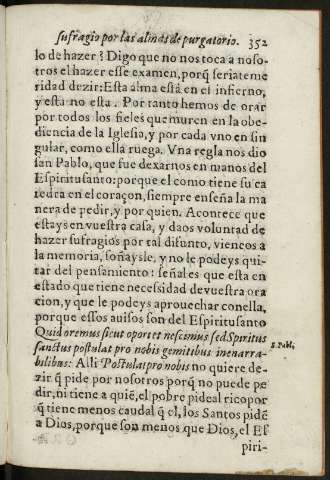 sufragio por las almas de purgatorio. 352
lo de hazer? Digo que no nos toca a noso-
tros el hazer esse examen, porq̃ seria teme
ridad dezir: Esta alma està en el infierno,
y esta no esta. Por tanto hemos de orar
por todos los fieles que muren en la obe-
diencia de la Iglesia, y por cada vno en sin
gular, como ella ruega. Vna regla nos dio
san Pablo, que fue dexarnos en manos del
Espiritusanto: porque el como tiene su ca
tedra en el coraçon, siempre enseña la ma
nera de pedir, y por quien. Acontece que
estays en vuestra casa, y daos voluntad de
hazer sufragios por tal difunto, vieneos a
la memoria, soñaysle, y no le podeys qui-
tar del pensamiento: señal es que esta en
estado que tiene necessidad de vuestra ora
cion, y que le podeys aprouechar con ella,
porque essos auisos son del Espiritusanto
Quid oremus sicut oportet nescimus sed Spiritus
sanctus postulat pro nobis gemitibus inenarra-
bilibus: Alli Postulat pro nobis no quiere de-
zir q̃ pide por nosotros porq̃ no puede pe-
dir, ni tiene a quiē, el pobre pide al rico por
q̃ tiene menos caudal q̃ el, los Santos pidē
a Dios, porque son menos que Dios, el Es
piri-
S. Pabl.